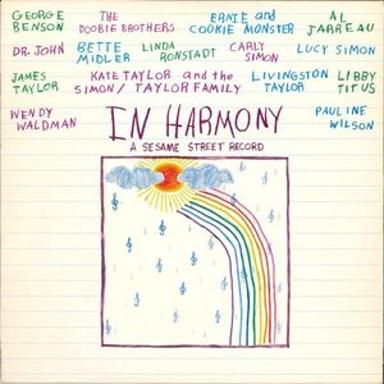 GEORGE BENSON
THE DOOBIE BROTHERS
ERNIE and COOKIE MONSTER
AL JARREAU
DR. JOHN
BETTE MIDLER
LINDA RONSTADT
CARLY SIMON
LUCY SIMON
JAMES TAYLOR
KATE TAYLOR and the SIMON/TAYLOR FAMILY
LIVINGSTON TAYLOR
LIBBY TITUS
WENDY WALDMAN
PAULINE WILSON
IN HARMONY
A SESAME STREET RECORD